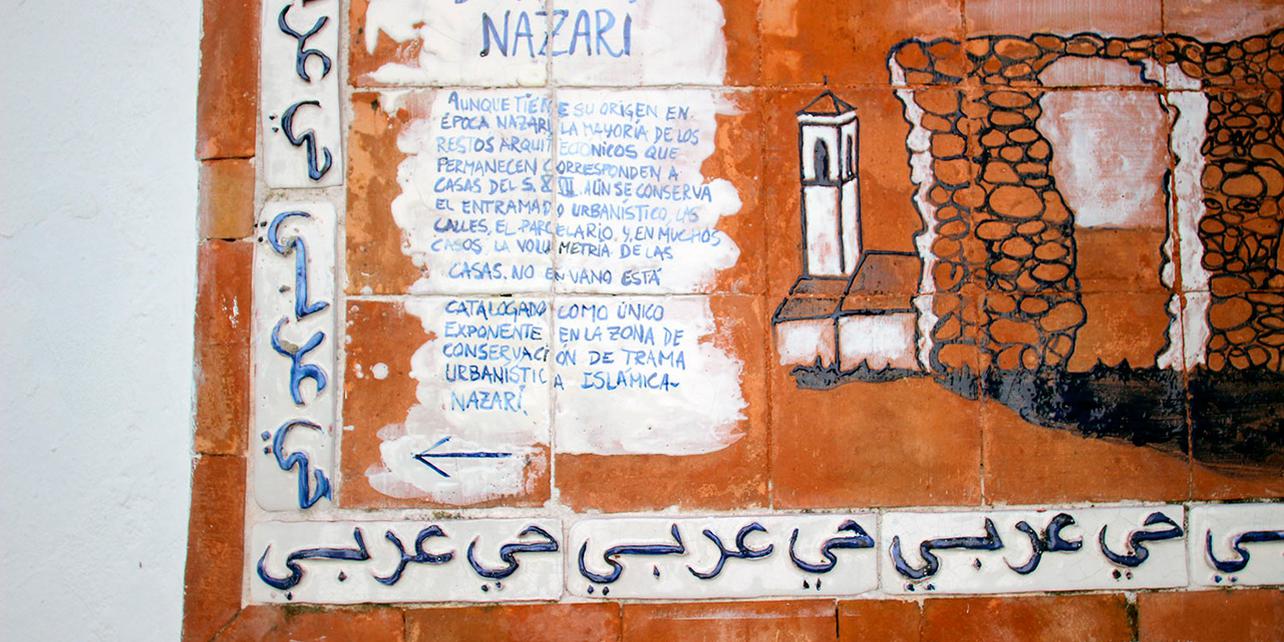 NAZARÍ
AUNQUE TIENE SU ORIGEN EN
ÉPOCA NAZARÍ, LA MAYORÍA DE LOS
RESTOS ARQUITECTÓNICOS QUE
PERMANECEN CORRESPONDEN A
CASAS DEL S. XVII. AÚN SE CONSERVA
EL ENTRAMADO URBANÍSTICO, LAS
CALLES, EL PARCELARIO, Y, EN MUCHOS
CASOS LA VOLUMETRÍA DE LAS
CASAS. NO EN VANO ESTÁ
CATALOGADO COMO ÚNICO
EXPONENTE EN LA ZONA DE
CONSERVACIÓN DE TRAMA
URBANÍSTICA ISLÁMICA-
NAZARÍ.
حي عربي
حي عربي
حي عربي
حي عربي